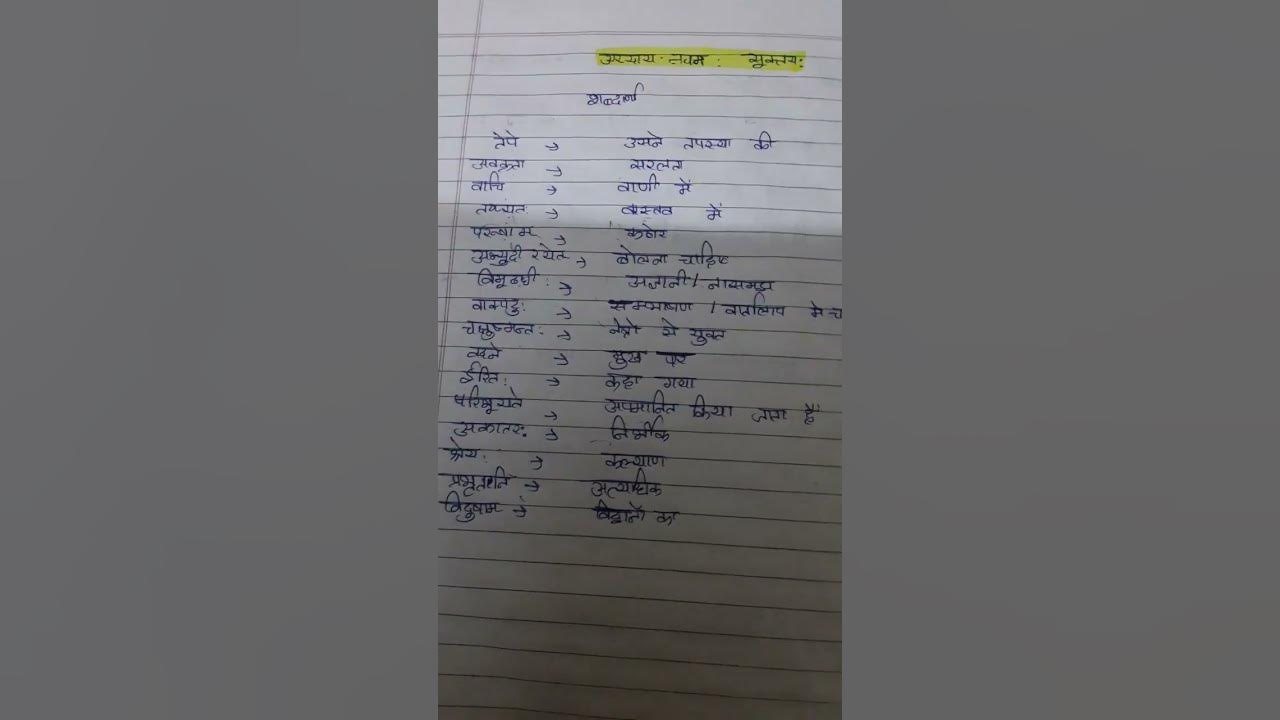 अध्याय नवम : सूक्तयः
शब्दार्थ
तेपे → उसने तपस्या की
अवक्रता → सरलता
वाचि → वाणी में
तथ्यतः → वास्तव में
परुषाम → कठोर
अभ्युदीरयेत → बोलना चाहिए
विमूढधी: → अज्ञानी / नासमझ
वाक्पटु: → सम्भाषण / वार्तालाप मे
चक्षुष्मन्त: → नेत्रो से युक्त
वदने → मुख पर
ईरित: → कहा गया
परिभूयते → अपमानित किया जाता है
अकातर: → निर्भीक
श्रेय: → कल्याण
प्रभूतानि → अत्यधिक
विदुषाम → विद्वानों का